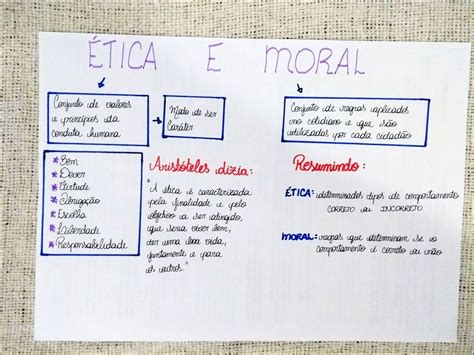 ÉTICA E MORAL
Conjunto de valores
e princípios da
conduta humana
Modo de ser
Caráter
Conjunto de regras aplicadas
no cotidiano e que são
utilizadas por cada cidadão
* Bem
* Dever
* Virtude
* Abnegação
* Escolha
* Liberdade
* Responsabilidade
Aristóteles dizia:
"A ética é caracterizada
pela finalidade e pelo
objetivo a ser atingido,
que seria viver bem,
ter uma boa vida,
juntamente e para
os outros"
Resumindo:
ÉTICA: determinados tipos de comportamento
CORRETO ou INCORRETO
MORAL: regras que determinam se o
comportamento é correto ou não